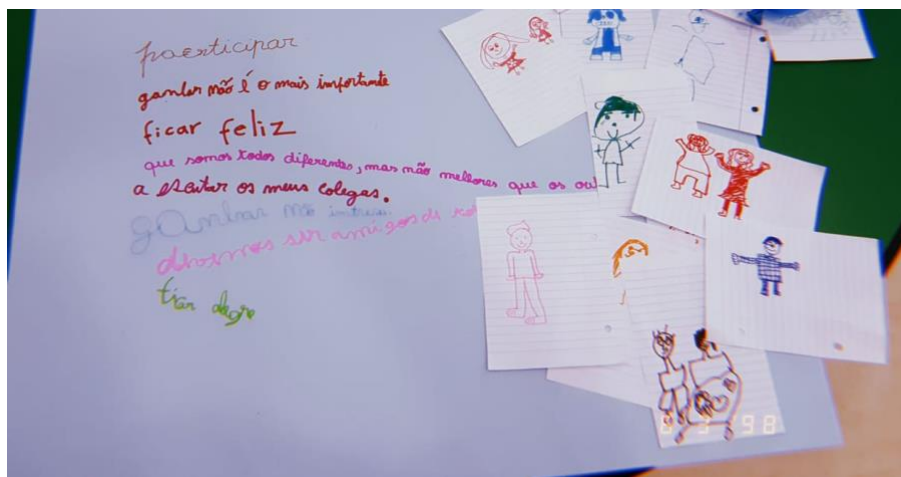 participar
ganhar não é o mais importante
ficar feliz
que somos todos diferentes, mas não melhores que os ou
a escutar os meus colegas.
ganhar não
devemos ser amigos de
ficar alegre
98